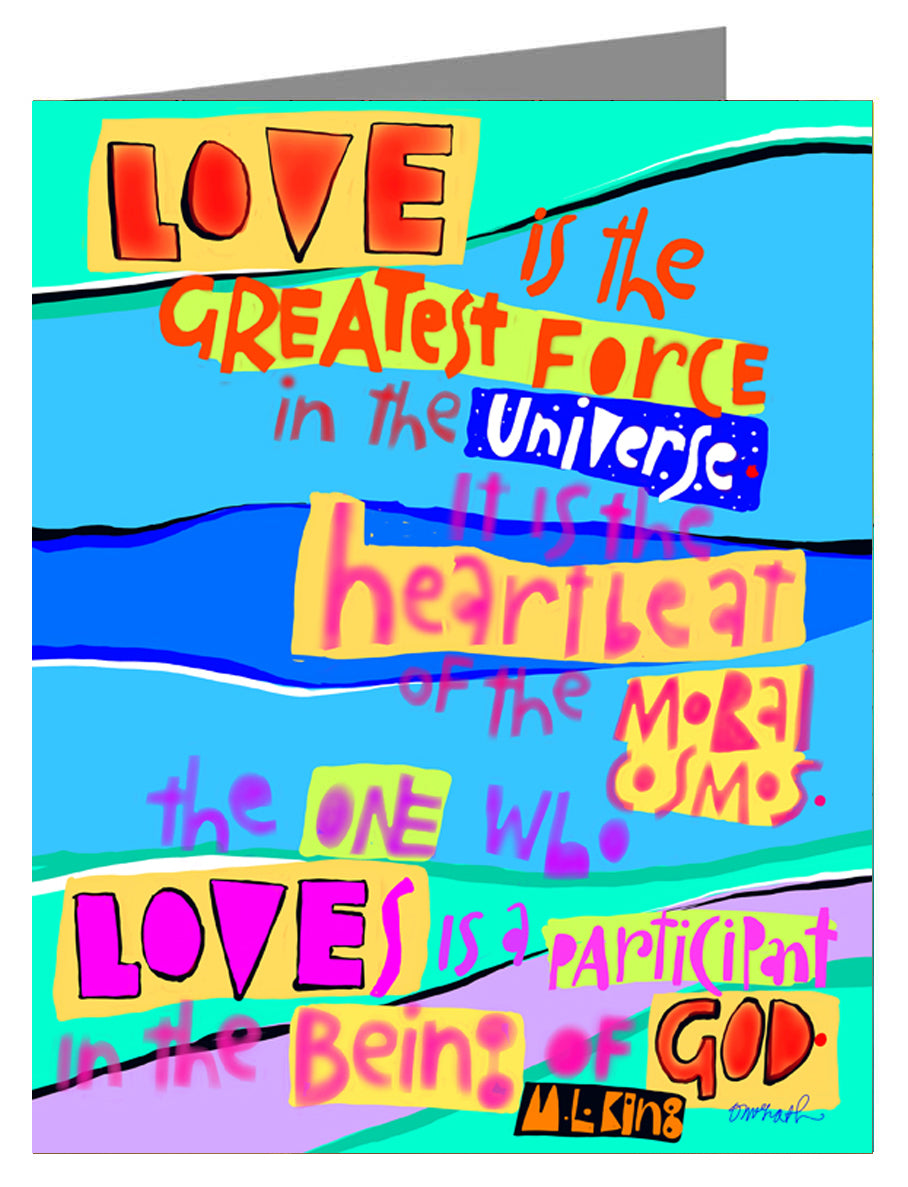 LOVE
is the
GREATest FOrCE
in the Universe.
It is the
heartbeat
of the MORal
COSMOS.
the ONE who
LOVEs is a PArtiCiPant
in the Being of GOD.
M.L.King